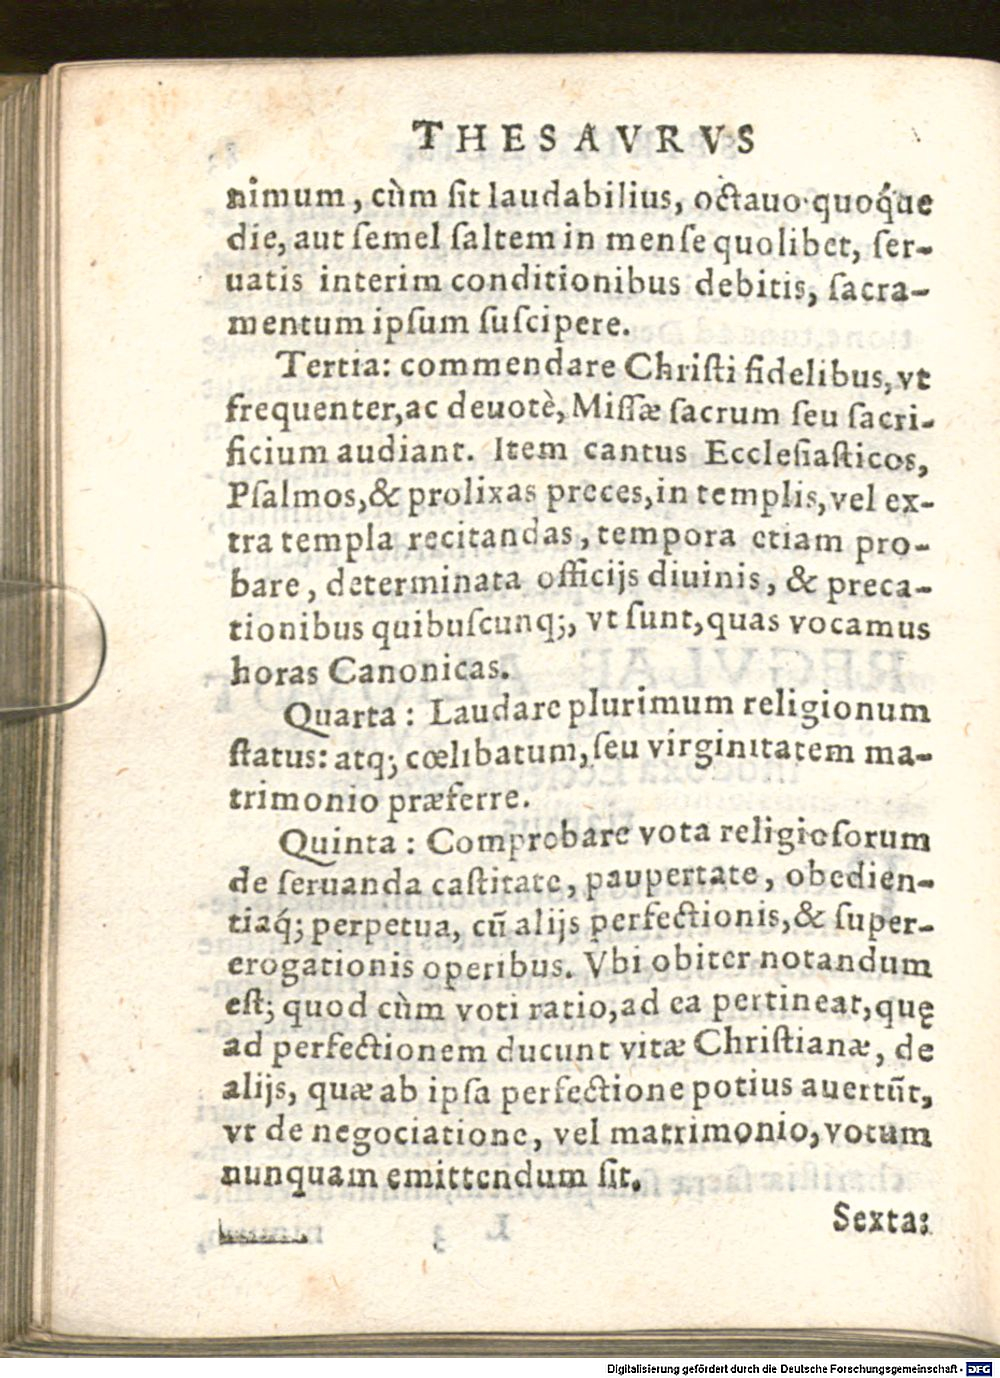 THESAVRVS
nimum, cùm ſit laudabilius, octauo quoq́ue
die, aut ſemel ſaltem in menſe quolibet, ſer-
uatis interim conditionibus debitis, ſacra-
mentum ipſum ſuſcipere.
Tertia: commendare Chriſti fidelibus, vt
frequenter, ac deuotè, Miſſæ ſacrum ſeu ſacri-
ficium audiant. Item cantus Eccleſiaſticos,
Pſalmos, & prolixas preces, in templis, vel ex-
tra templa recitandas, tempora etiam pro-
bare, determinata officijs diuinis, & preca-
tionibus quibuſcunq;, vt ſunt, quas vocamus
horas Canonicas.
Quarta: Laudare plurimum religionum
ſtatus: atq; cœlibatum, ſeu virginitatem ma-
trimonio præferre.
Quinta: Comprobare vota religioſorum
de ſeruanda caſtitate, paupertate, obedien-
tiaq́; perpetua, cū alijs perfectionis, & ſuper-
erogationis operibus. Vbi obiter notandum
eſt; quod cùm voti ratio, ad ea pertineat, quę
ad perfectionem ducunt vitæ Chriſtianæ, de
alijs, quæ ab ipſa perfectione potius auertūt,
vt de negociatione, vel matrimonio, votum
nunquam emittendum ſit.
Sexta:
Digitalisierung gefördert durch die Deutsche Forschungsgemeinschaft - DFG